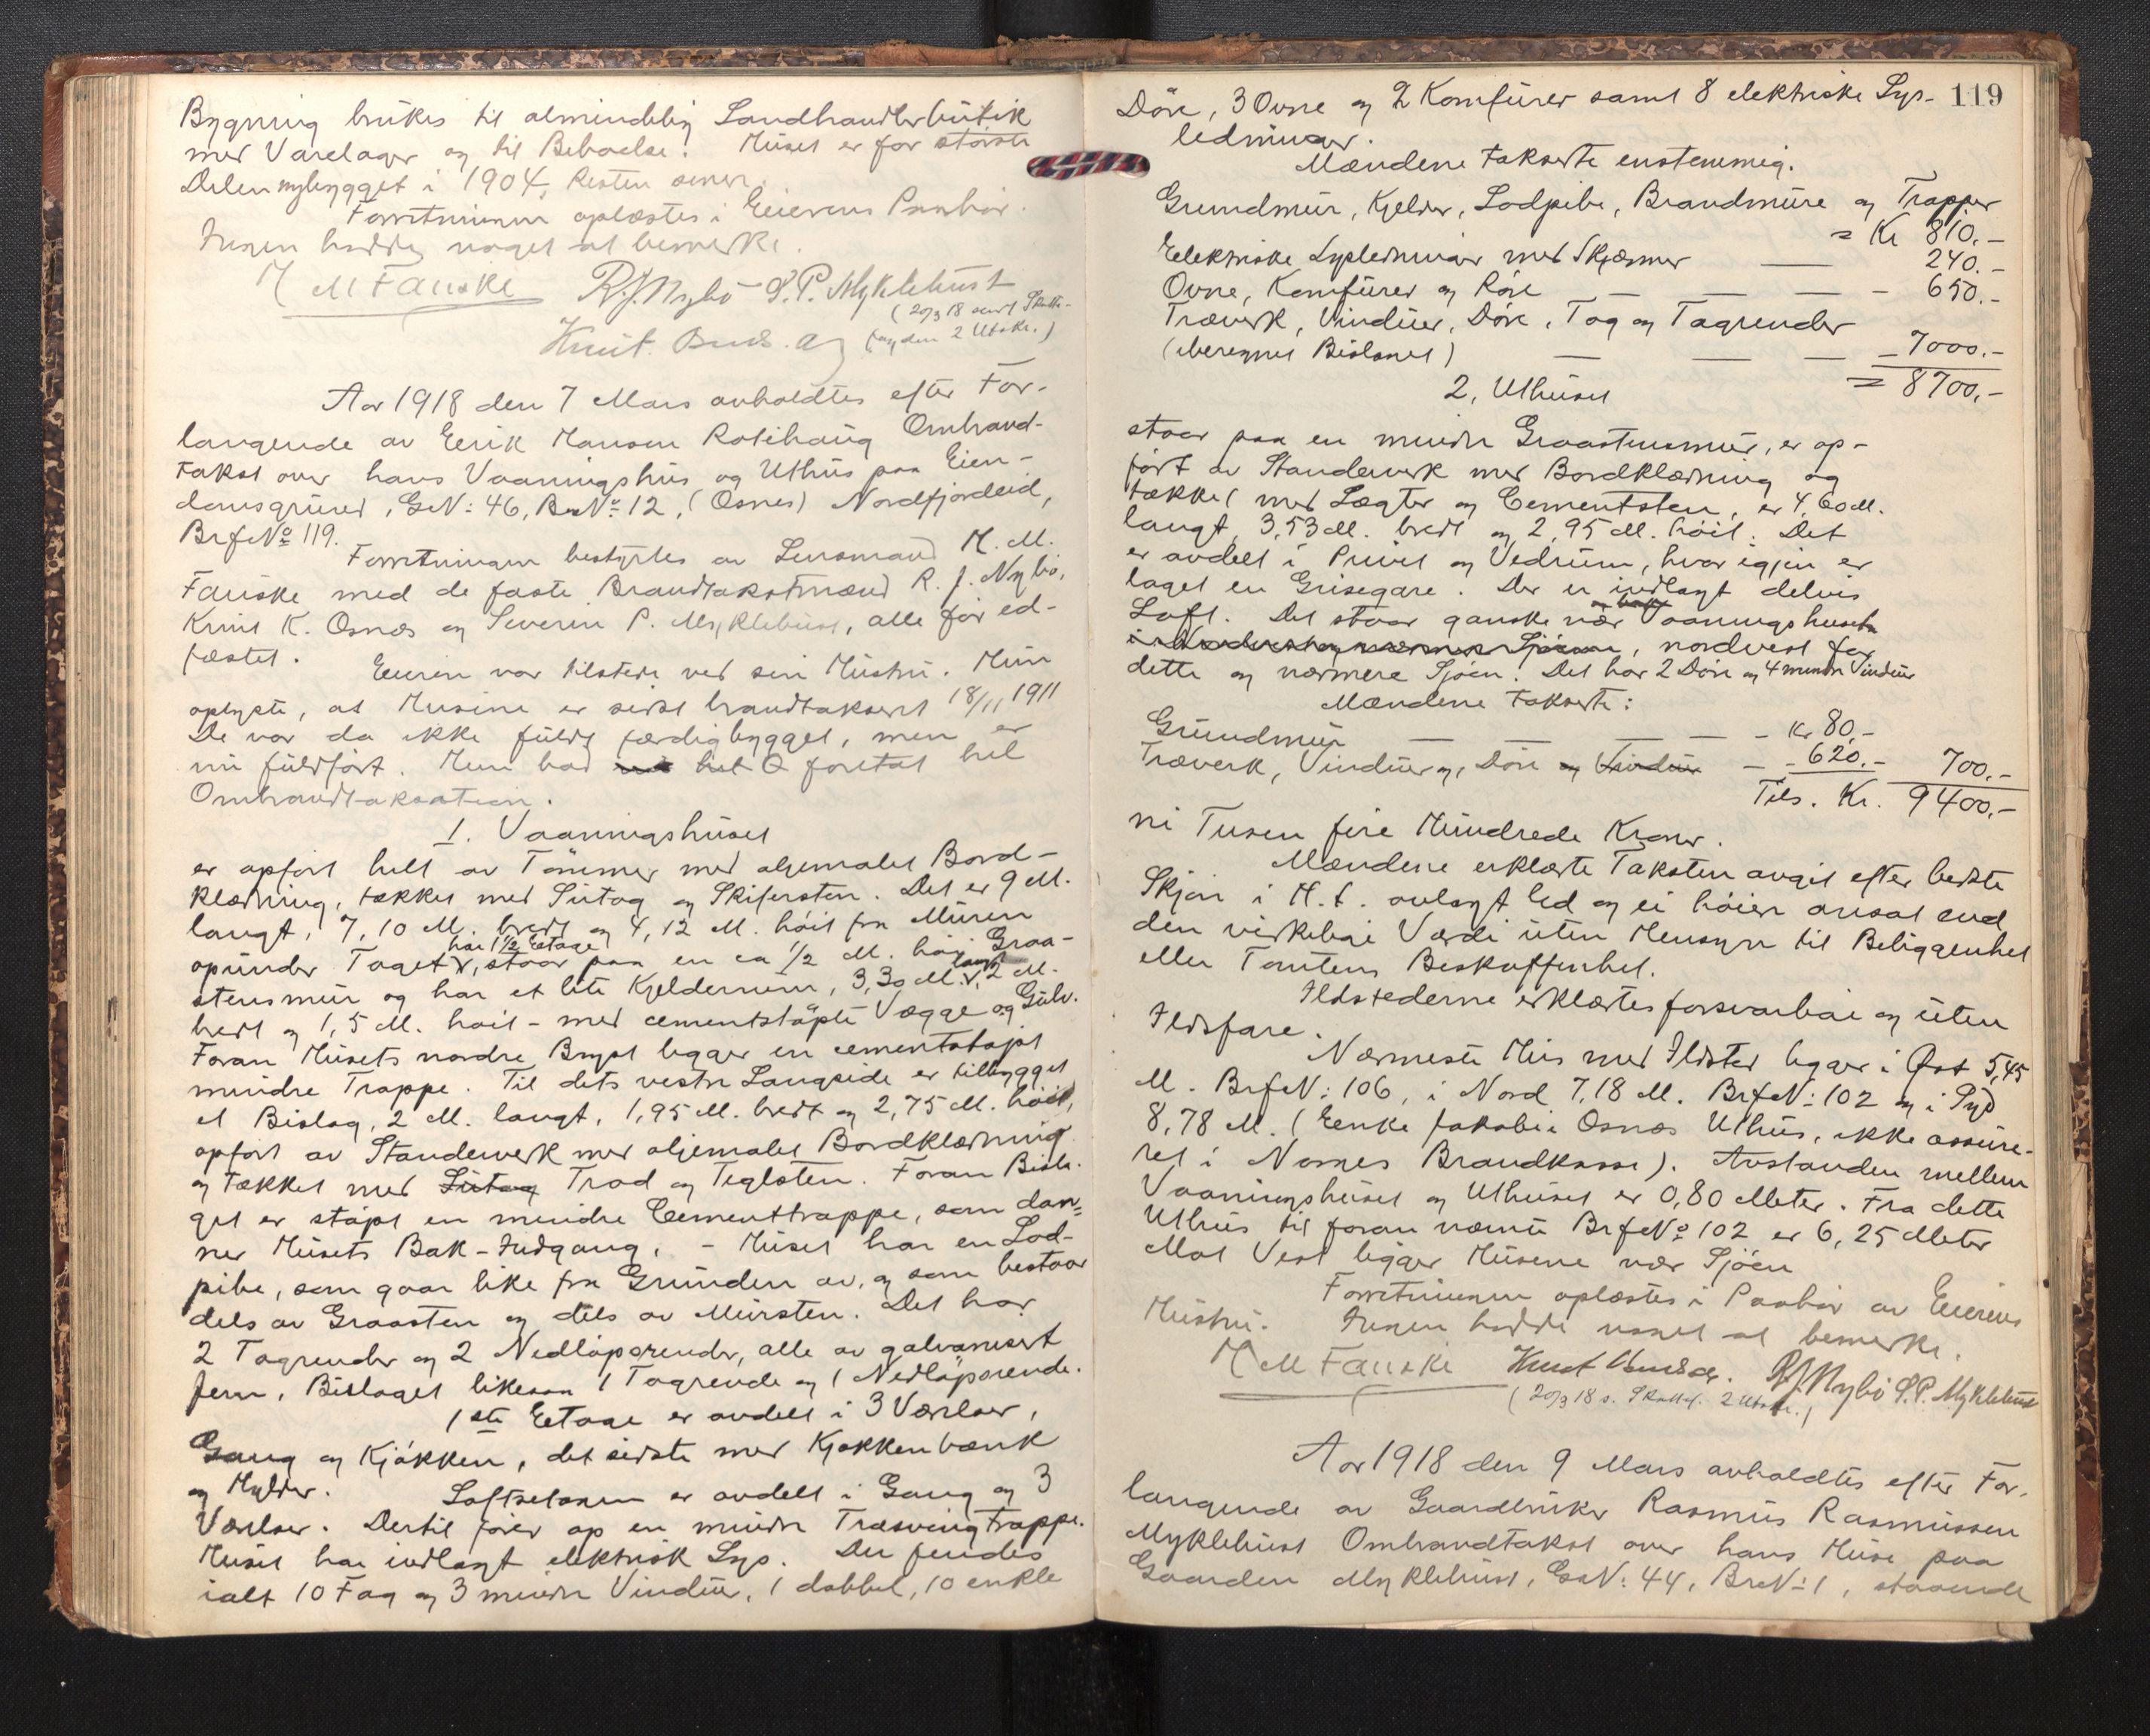 Bygning brukes til almindelig Landhandlerbutik
med Varelager og til Beboelse. Huset er for største
Delen nybygget i 1904, Resten senere.
Forretningen oplæstes i Eierens Paahør.
Ingen hadde noget at bemerke.
M M Fauske R. J. Nybö S. P. Myklebust
(20/3 18 sendt Skatte-
Knut
2 Utskr.)
Aar 1918 den 7 Mars avholdtes efter For-
langende av Eerik Hansen Rotihaug Ombrand-
takst over hans Vaaningshus og Uthus paa Eien-
domsgrund, G№: 46, B№: 12, (Osnes) Nordfjordeid,
Brf№ 119.
Forretningen bestyrtes av Lensmand M. M.
Fauske med de faste Brandtakstmænd R. J. Nybö,
Knut K. Osnæs og Severin P. Myklebust, alle før ed-
fæstet.
Eieren var tilstede ved sin Hustru. Hun
oplyste, at Husene er sidst brandtaksert 18/11 1911
De var da ikke fuldt færdigbygget, men er
nu fuldført. Hun bad foretat hel
Ombrandtaksation.
1. Vaaningshuset
er opført helt av Tømmer med oljemalet Bord-
klædning, tækket med Sutag og Skifersten. Det er 9 M.
langt, 7,10 M. bredt og 4,12 M. høit fra Muren
har 1½ Etage
opunder Taget, staar paa en ca ½ M. høi Graa-
langt
stensmur og har et lite Kjelderrum, 3,30 M., 2 M.
bredt og 1,5 M. høit - med cementstøpte Vægge og Gulv.
Foran Husets nordre Bryst ligger en cementstøpt
mindre Trappe. Til dets vestre Langside er tilbygget
et Bislag, 2 M. langt, 1,95 M. bredt og 2,75 M. høit,
opført av Standerverk med oljemalet Bordklædning
og tækket med Sutag Trod og Teglsten. Foran Bisla-
get er støpt en mindre Cementtrappe, som dan-
ner Husets Bak-Indgang. - Huset har en Lod-
pibe, som gaar like fra Grunden av, og som bestaar
dels av Graasten og dels av Mursten. Det har
2 Tagrender og 2 Nedløpsrender, alle av galvanisert
Jern, Bislaget likesaa 1 Tagrende og 1 Nedløpsrende.
1ste Eetage er avdelt i 3 Værelser,
Gang og Kjøkken, det sidste med Kjøkkenbænk
og Hylder.
Loftsetagen er avdelt i Gang og 3
Værelser. Dertil fører op en mindre Træsvingtrappe.
Huset har indlagt elektrisk Lys. Der findes
ialt 10 Fag og 3 mindre Vinduer, 1 dobbel, 10 enkle
119
Døre, 3 Ovne og 2 Komfurer samt 8 elektriske Lys-
ledninger.
Mændene takserte enstemmig.
Grundmur, Kjelder, Lodpibe, Brandmure og Trapper
= Kr 810.-
Elektriske Lysledninger med Skjærmer — 240.-
Ovne, Komfurer og Röre — — — - 650.-
Træverk, Vinduer, Döre, Tag og Tagrender
(iberegnet Bislaget) — — — - 7000.-
= 8700,-
2, Uthuset
staar paa en mindre Graastensmur, er op-
ført av Standerverk med Bordklædning og
tækket med Lægter og Cementsten, er 4,60 M.
langt, 3,53 M. bredt og 2,95 M. høit. Det
er avdelt i Privet og Vedrum, hvor igjen er
laget en Grisegare. Der er indlagt delvis
Loft. Det staar ganske nær Vaaningshuset
, nordvest for
dette og nærmere Sjöen. Det har 2 Döre og 4 mindre Vinduer
Mændene takserte:
Grundmur — — — - Kr 80.-
Træverk, Vinduer og, Döre og Vinduer — - 620.- 700.-
Tils. Kr. 9400,-
ni Tusen fire Hundrede Kroner.
Mændene erklærte Taksten avgit efter bedste
Skjøn i H. t. avlagt Ed og ei høiere ansat end
den virkelige Værdi uten Hensyn til Beliggenhet
eller Tomtens Beskaffenhet.
Ildstederne erklærtes forsvarlige og uten
Ildsfare.
Nærmeste Hus med Ildsted ligger i Øst 5,45
M. Brf№: 106, i Nord 7,18 M. Brf№: 102 og i Syd
8,78 M. (Eenke Jakobie Osnæs Uthus, ikke assure-
ret i Norges Brandkasse). Avstanden mellem
Vaaningshuset og Uthuset er 0,80 Meter. Fra dette
Uthus til foran nævnte Brf№ 102 er 6,25 Meter
Mot Vest ligger Husene nær Sjöen
Forretningen oplæstes i Paahør av Eierens
Hustru. Ingen hadde noget at bemerke.
M M Fauske Knut R. J. Nybö S. P. Myklebust
(20/3 18 s. Skattef. 2 Utskr.)
Aar 1918 den 9 Mars avholdtes efter For-
langende av Gaardbruker Rasmus Rasmussen
Myklebust Ombrandtakst over hans Huse paa
Gaarden Myklebust, G№: 44, Br№: 1, staaende